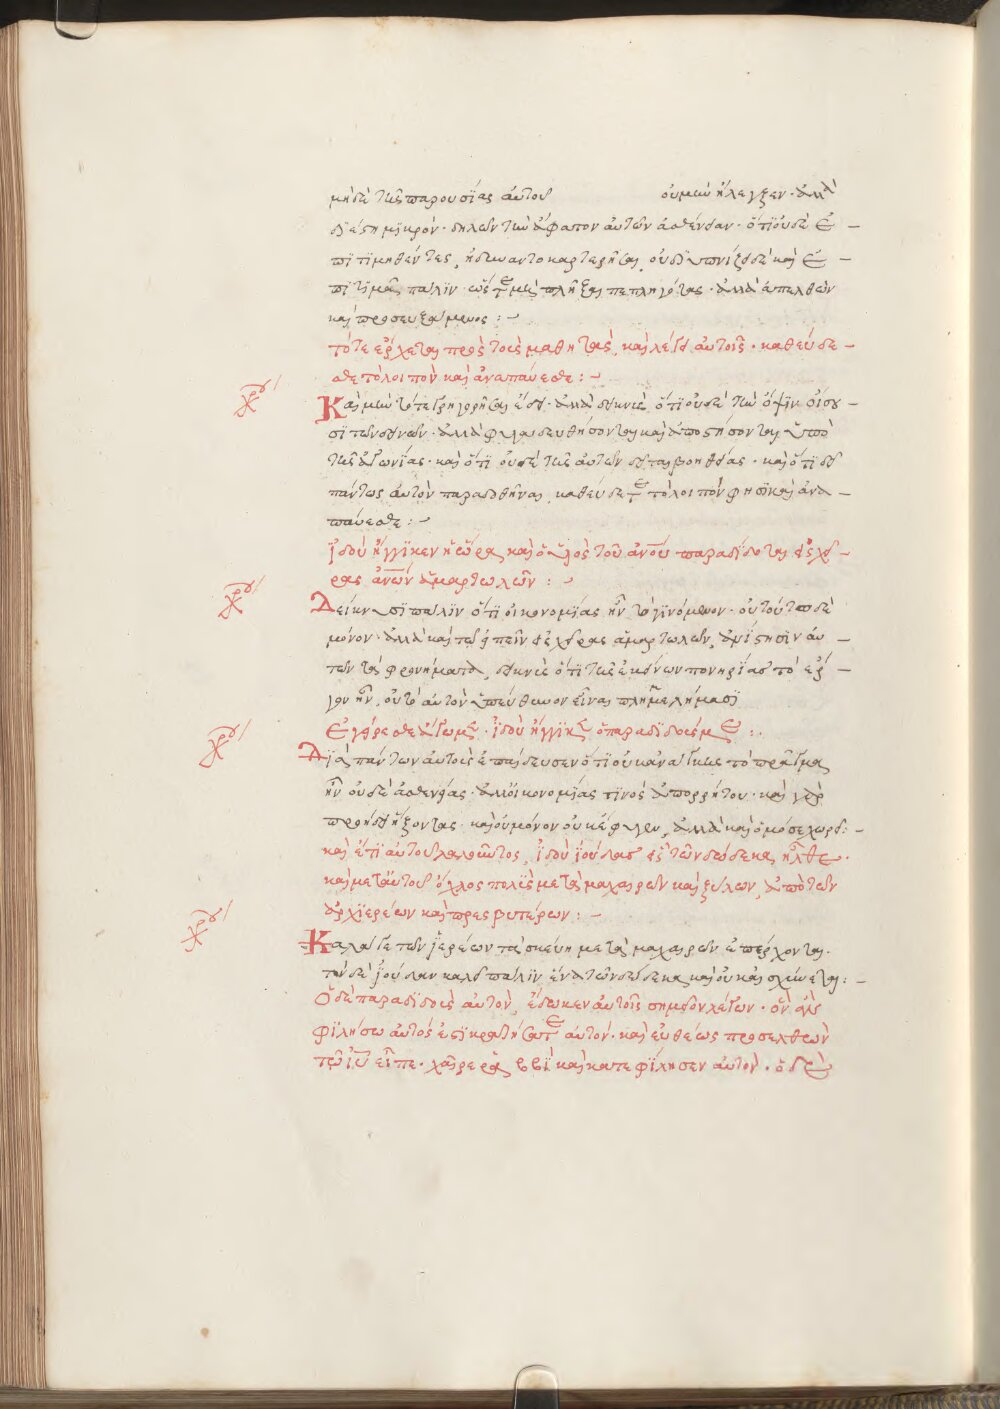 μηδὲ τῆς παρουσίας αὐτοῦ οὐ μὴν ἤλεγξεν· ἀλλὰ
διέστη μικρὸν· δηλῶν τὴν ἄφατον αὐτῶν ἀσθένειαν· ὅτι οὐδὲ ἐ
πιτιμηθέντες, ἠδύναντο καρτερῆσαι, οὐδὲ ὑπνίζει δὲ καὶ ἐ
πιτιμᾷ πάλιν· ὥστε μὴ πλῆξαι πεπληγότας· ἀλλὰ ἀπελθὼν
καὶ προσευξάμενος :
τότε ἔρχεται πρὸς τοὺς μαθητὰς, καὶ λέγει αὐτοῖς· καθεύδε
σθε τὸ λοιπὸν καὶ ἀναπαύεσθε :
χρυ
Καὶ μὴν τότε γρηγορῆσαι ἔδει· ἀλλὰ δεικνὺς ὅτι οὐδὲ τὴν ὄψιν οἴσου
σι τῶν δεινῶν· ἀλλὰ φυγαδευθήσονται καὶ ἀποστήσονται ὑπὸ
τῆς ἀγωνίας· καὶ ὅτι οὐδὲ τῆς αὐτῶν δεῖται βοηθείας· καὶ ὅτι δεῖ
πάντως αὐτὸν παραδοθῆναι, καθεύδετε τὸ λοιπὸν φησὶ καὶ ἀνα
παύεσθε :
ἰδοὺ ἤγγικεν ἡ ὥρα, καὶ ὁ υἱὸς τοῦ ἀνου παραδίδοται εἰς χεῖ
ρας ἀνων ἁμαρτωλῶν :
χρυ
Δείκνυσι πάλιν ὅτι οἰκονομίας ἦν τὸ γινόμενον· οὐ τούτω δὲ
μόνον· ἀλλὰ καὶ τῷ εἰπεῖν εἰς χεῖρας ἁμαρτωλῶν, ἀνίστησιν αὐ
τῶν τὰ φρονήματα, δεικνὺς ὅτι τῆς ἐκείνων πονηρίας τὸ ἔρ
γον ἦν, οὐ τὸ αὐτὸν ὑπεύθυνον εἶναι πλημμελήμασι
χρυ
Ἐγείρεσθε ἄγωμεν· ἰδοὺ ἤγγικεν ὁ παραδιδούς με :
Διὰ πάντων αὐτοὺς ἐπαίδευσεν ὅτι οὐκ ἀνάγκης τὸ πρᾶγμα
ἦν οὐδὲ ἀσθενείας· ἀλλ' οἰκονομίας τινὸς ἀπορρήτου· καὶ γὰρ
προῄδει ἥξοντας· καὶ οὐ μόνον οὐκ ἔφυγεν, ἀλλὰ καὶ ὁμόσε χωρεῖ :
καὶ ἔτι αὐτοῦ λαλοῦντος, ἰδοὺ ἰούδας εἷς τῶν δώδεκα, ἦλθε·
καὶ μετ' αὐτοῦ ὄχλος πολὺς μετὰ μαχαιρῶν καὶ ξύλων, ἀπὸ τῶν
ἀρχιερέων καὶ πρεσβυτέρων :
χρυ
Καλά γε τῶν ἱερέων τὰ σκεύη μετὰ μαχαιρῶν ἐπέρχονται·
τὸν δὲ ἰούδαν καλεῖ πάλιν ἕνα τῶν δώδεκα, καὶ οὐκ ἐπαισχύνεται :
Ὁ δὲ παραδιδοὺς αὐτὸν, ἔδωκεν αὐτοῖς σημεῖον λέγων· ὃν ἂν
φιλήσω αὐτός ἐστι κρατήσατε αὐτόν· καὶ εὐθέως προσελθὼν
τῷ ιυ εἶπε· χαῖρε ῥαββὶ καὶ κατεφίλησεν αὐτόν· ὁ δὲ